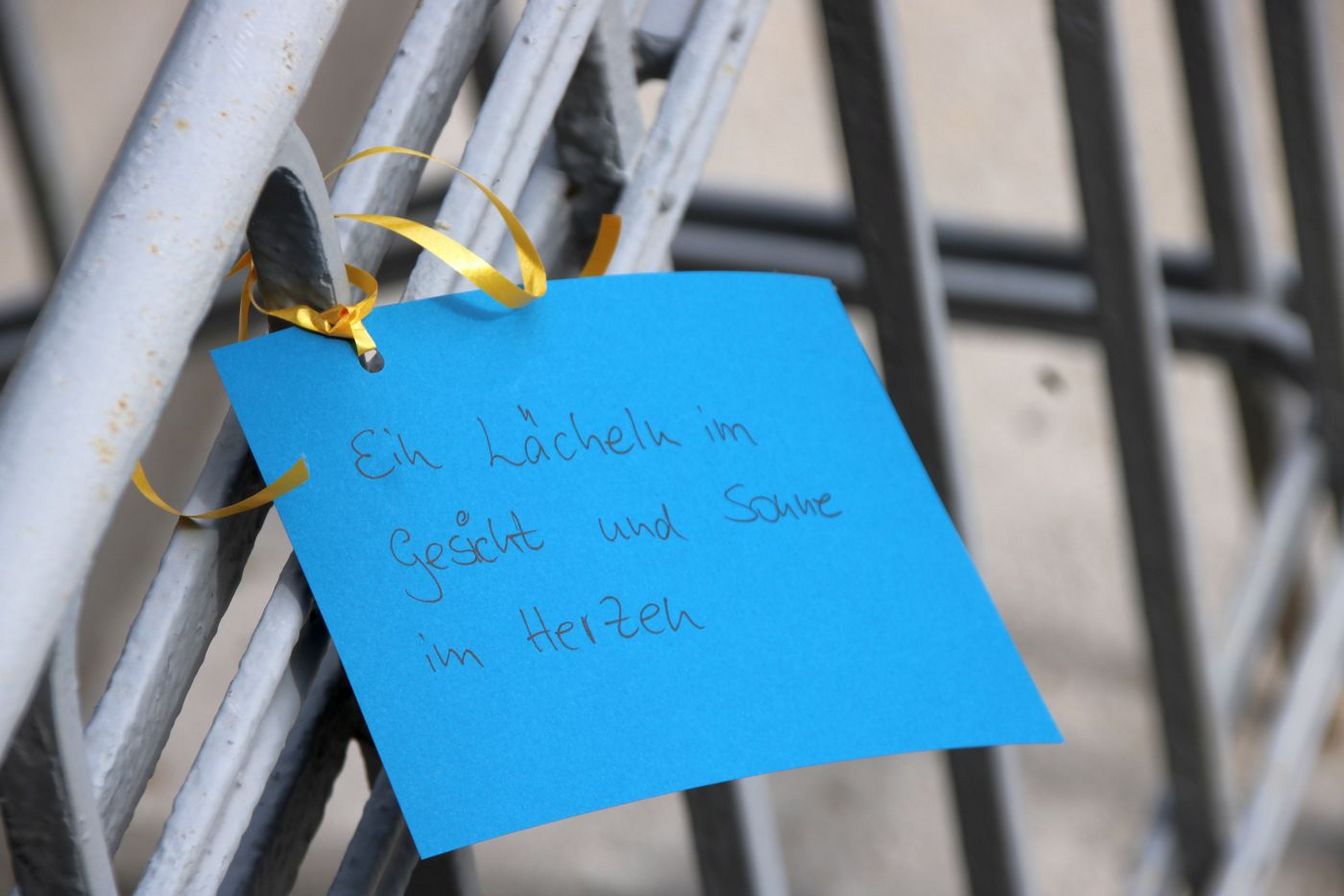 Ein Lächeln im
Gesicht und Sonne
im Herzen